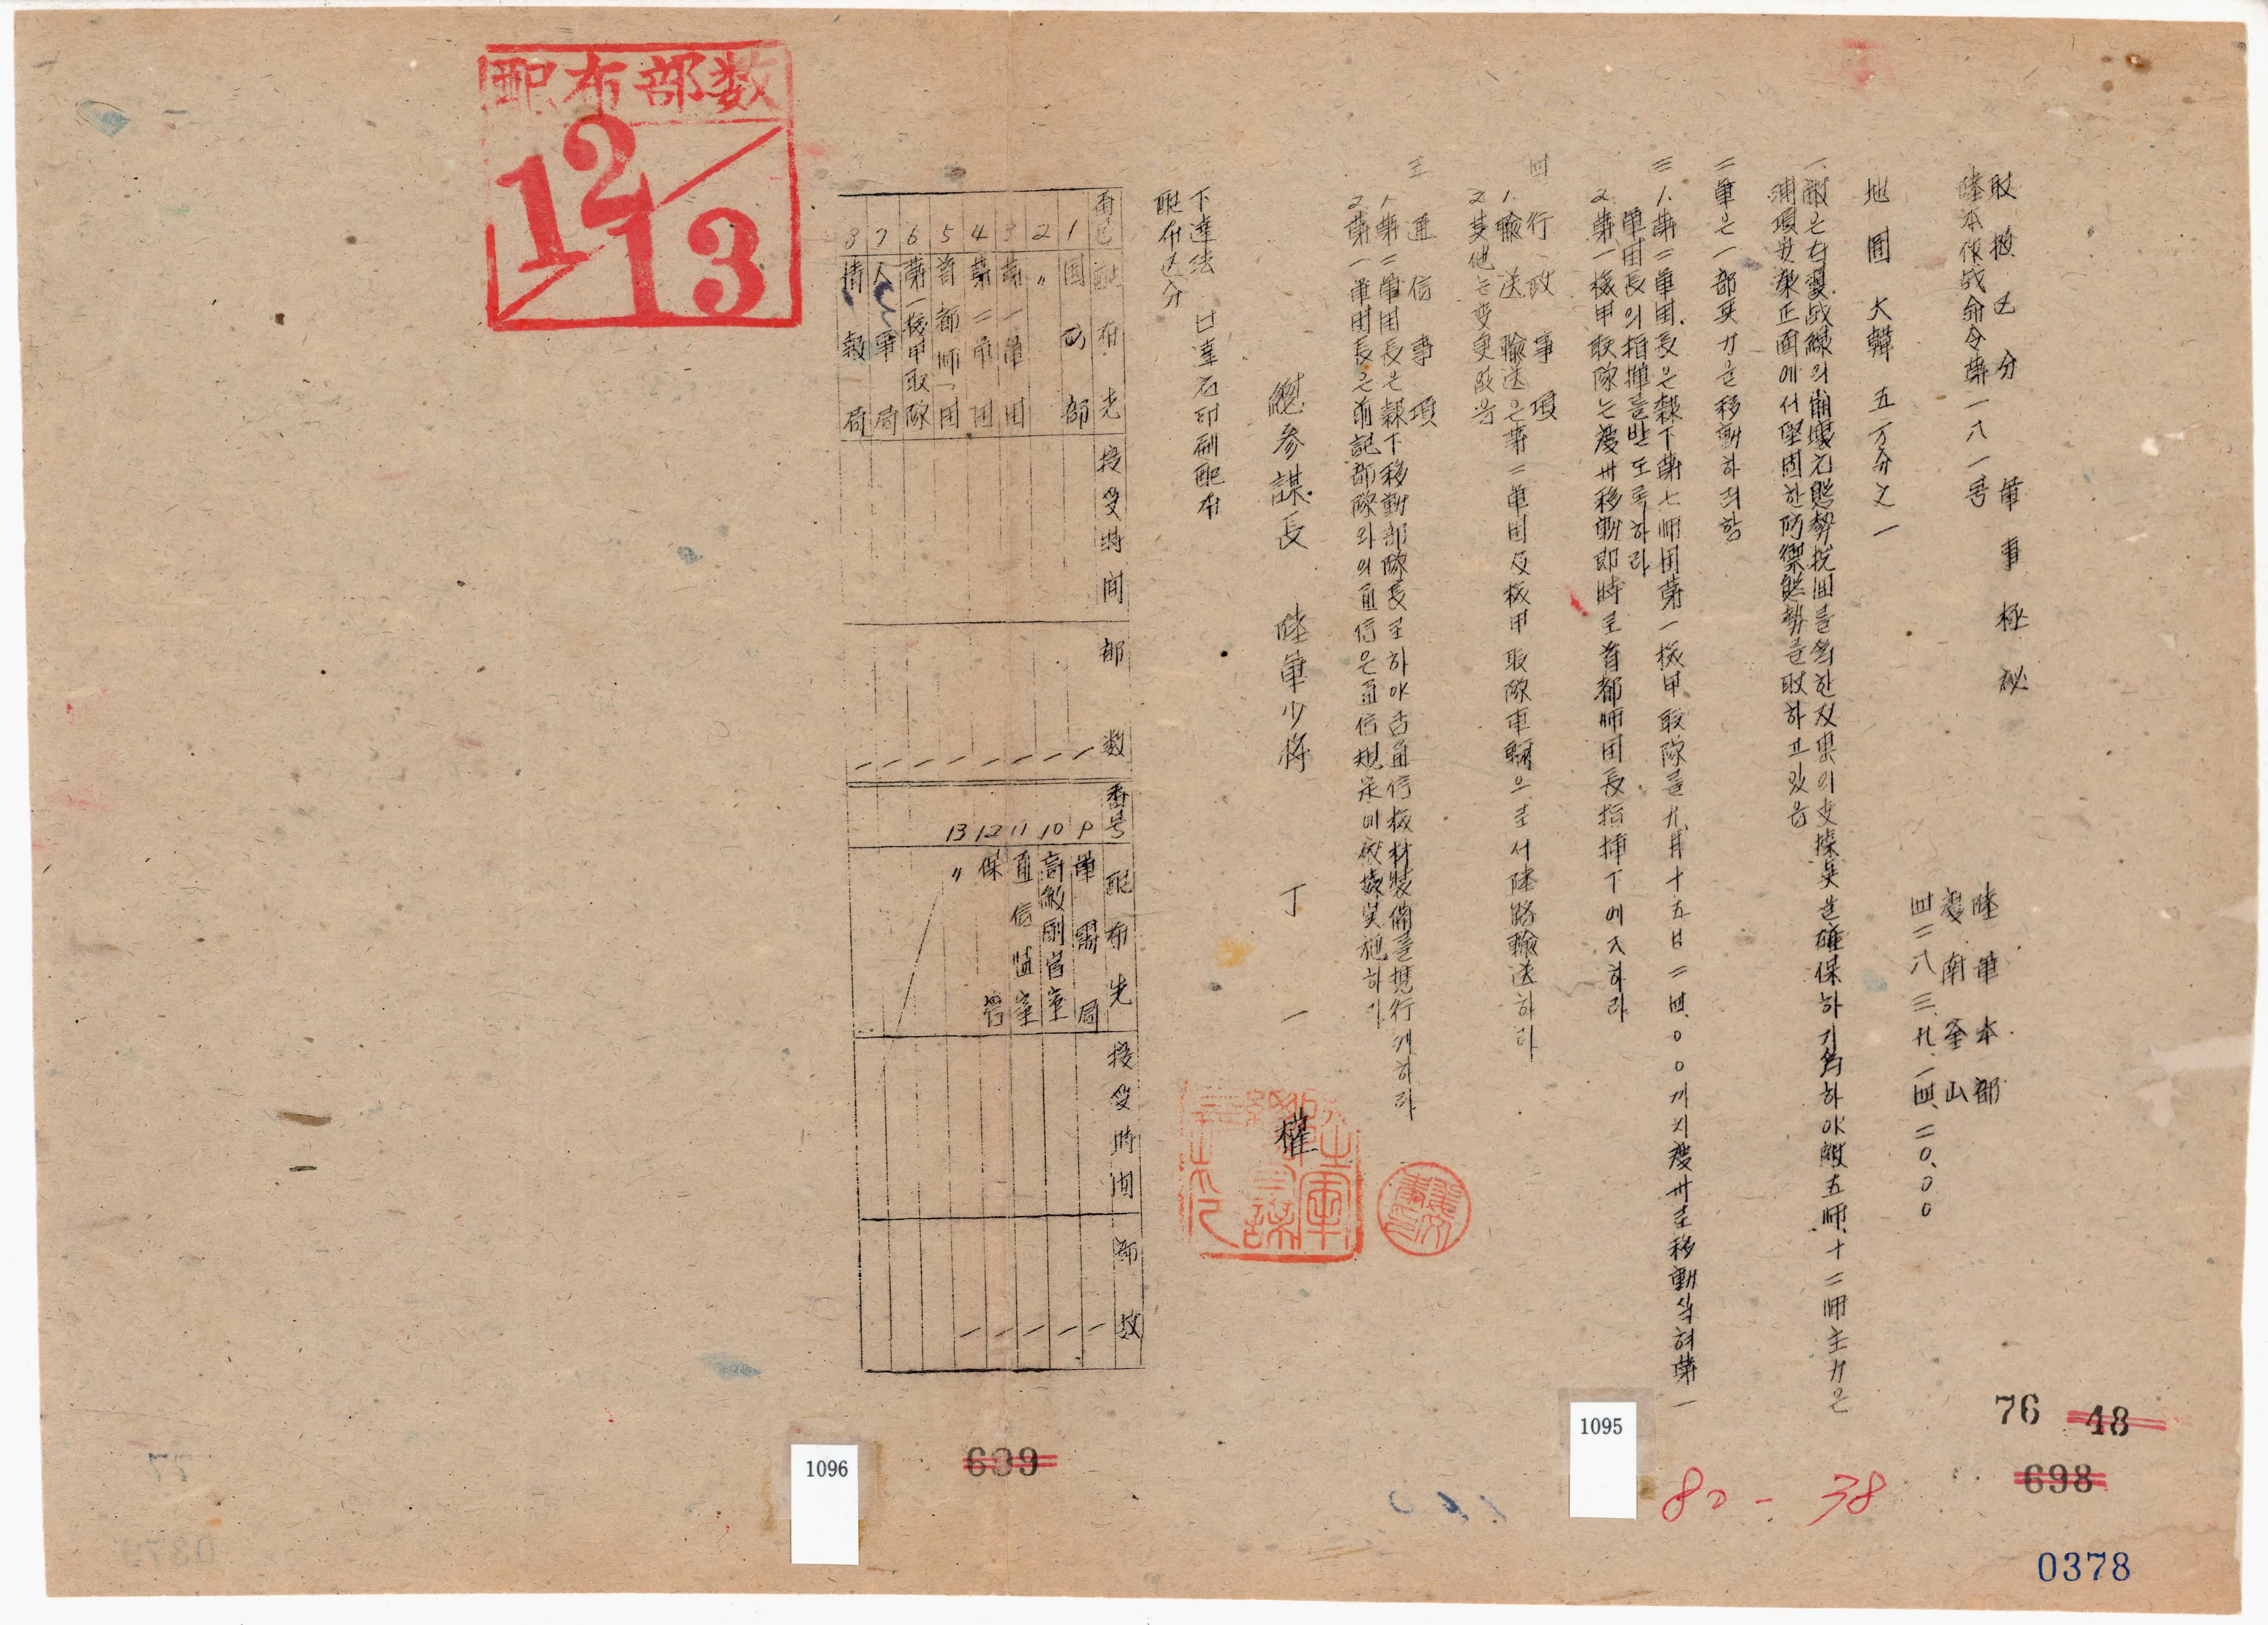 取扱区分 軍事極秘
陸本作戦命令第一八一号
陸軍本部
慶南釜山
四二八三.九.一四.二0.00
地図 大韓 五万分之一
一.敵은右翼戦線의崩壊된態勢挽回를為한双果의支撐点을確保하기爲하야敵五師.十二師主力은
浦項安康正面에서堅固한防禦態勢를取하고있음
二 軍은一部兵力을移動하려함
三 1.第二軍団長은隷下第七師団第一機甲聯隊를九月十五日二四00까지慶州로移動식혀第一
軍団長의指揮를받도록하라
2.第一機甲聯隊는慶州移動即時로首都師団長指揮下에入하라
四 行政事項
1.輸送 輸送은第二軍団及機甲聯隊車輛으로서陸路輸送하라
2.其他는変更없음
五 通信事項
1.第二軍団長은隷下移動部隊長로하야곰通信機材装備를携行케하라
2.第一軍団長은前記部隊와의通信은通信規定에依據実施하라
總参謀長 陸軍少将 丁一權
下達法 口達后印刷配布
配布区分
番号 配布先 授受時間 部数
1 国防部 一
2 〃 一
3 第一軍団 一
4 第二軍団 一
5 首都師団 一
6 第一機甲聯隊 一
7 人事局 一
8 情報局 一
番号 配布先 授受時間 部数
9 軍需局 一
10 高級副官室 一
11 通信監室 一
12 保管 一
13 〃 一
配布部数
12/13
76 48
698
699
1095
1096
80-38
0378